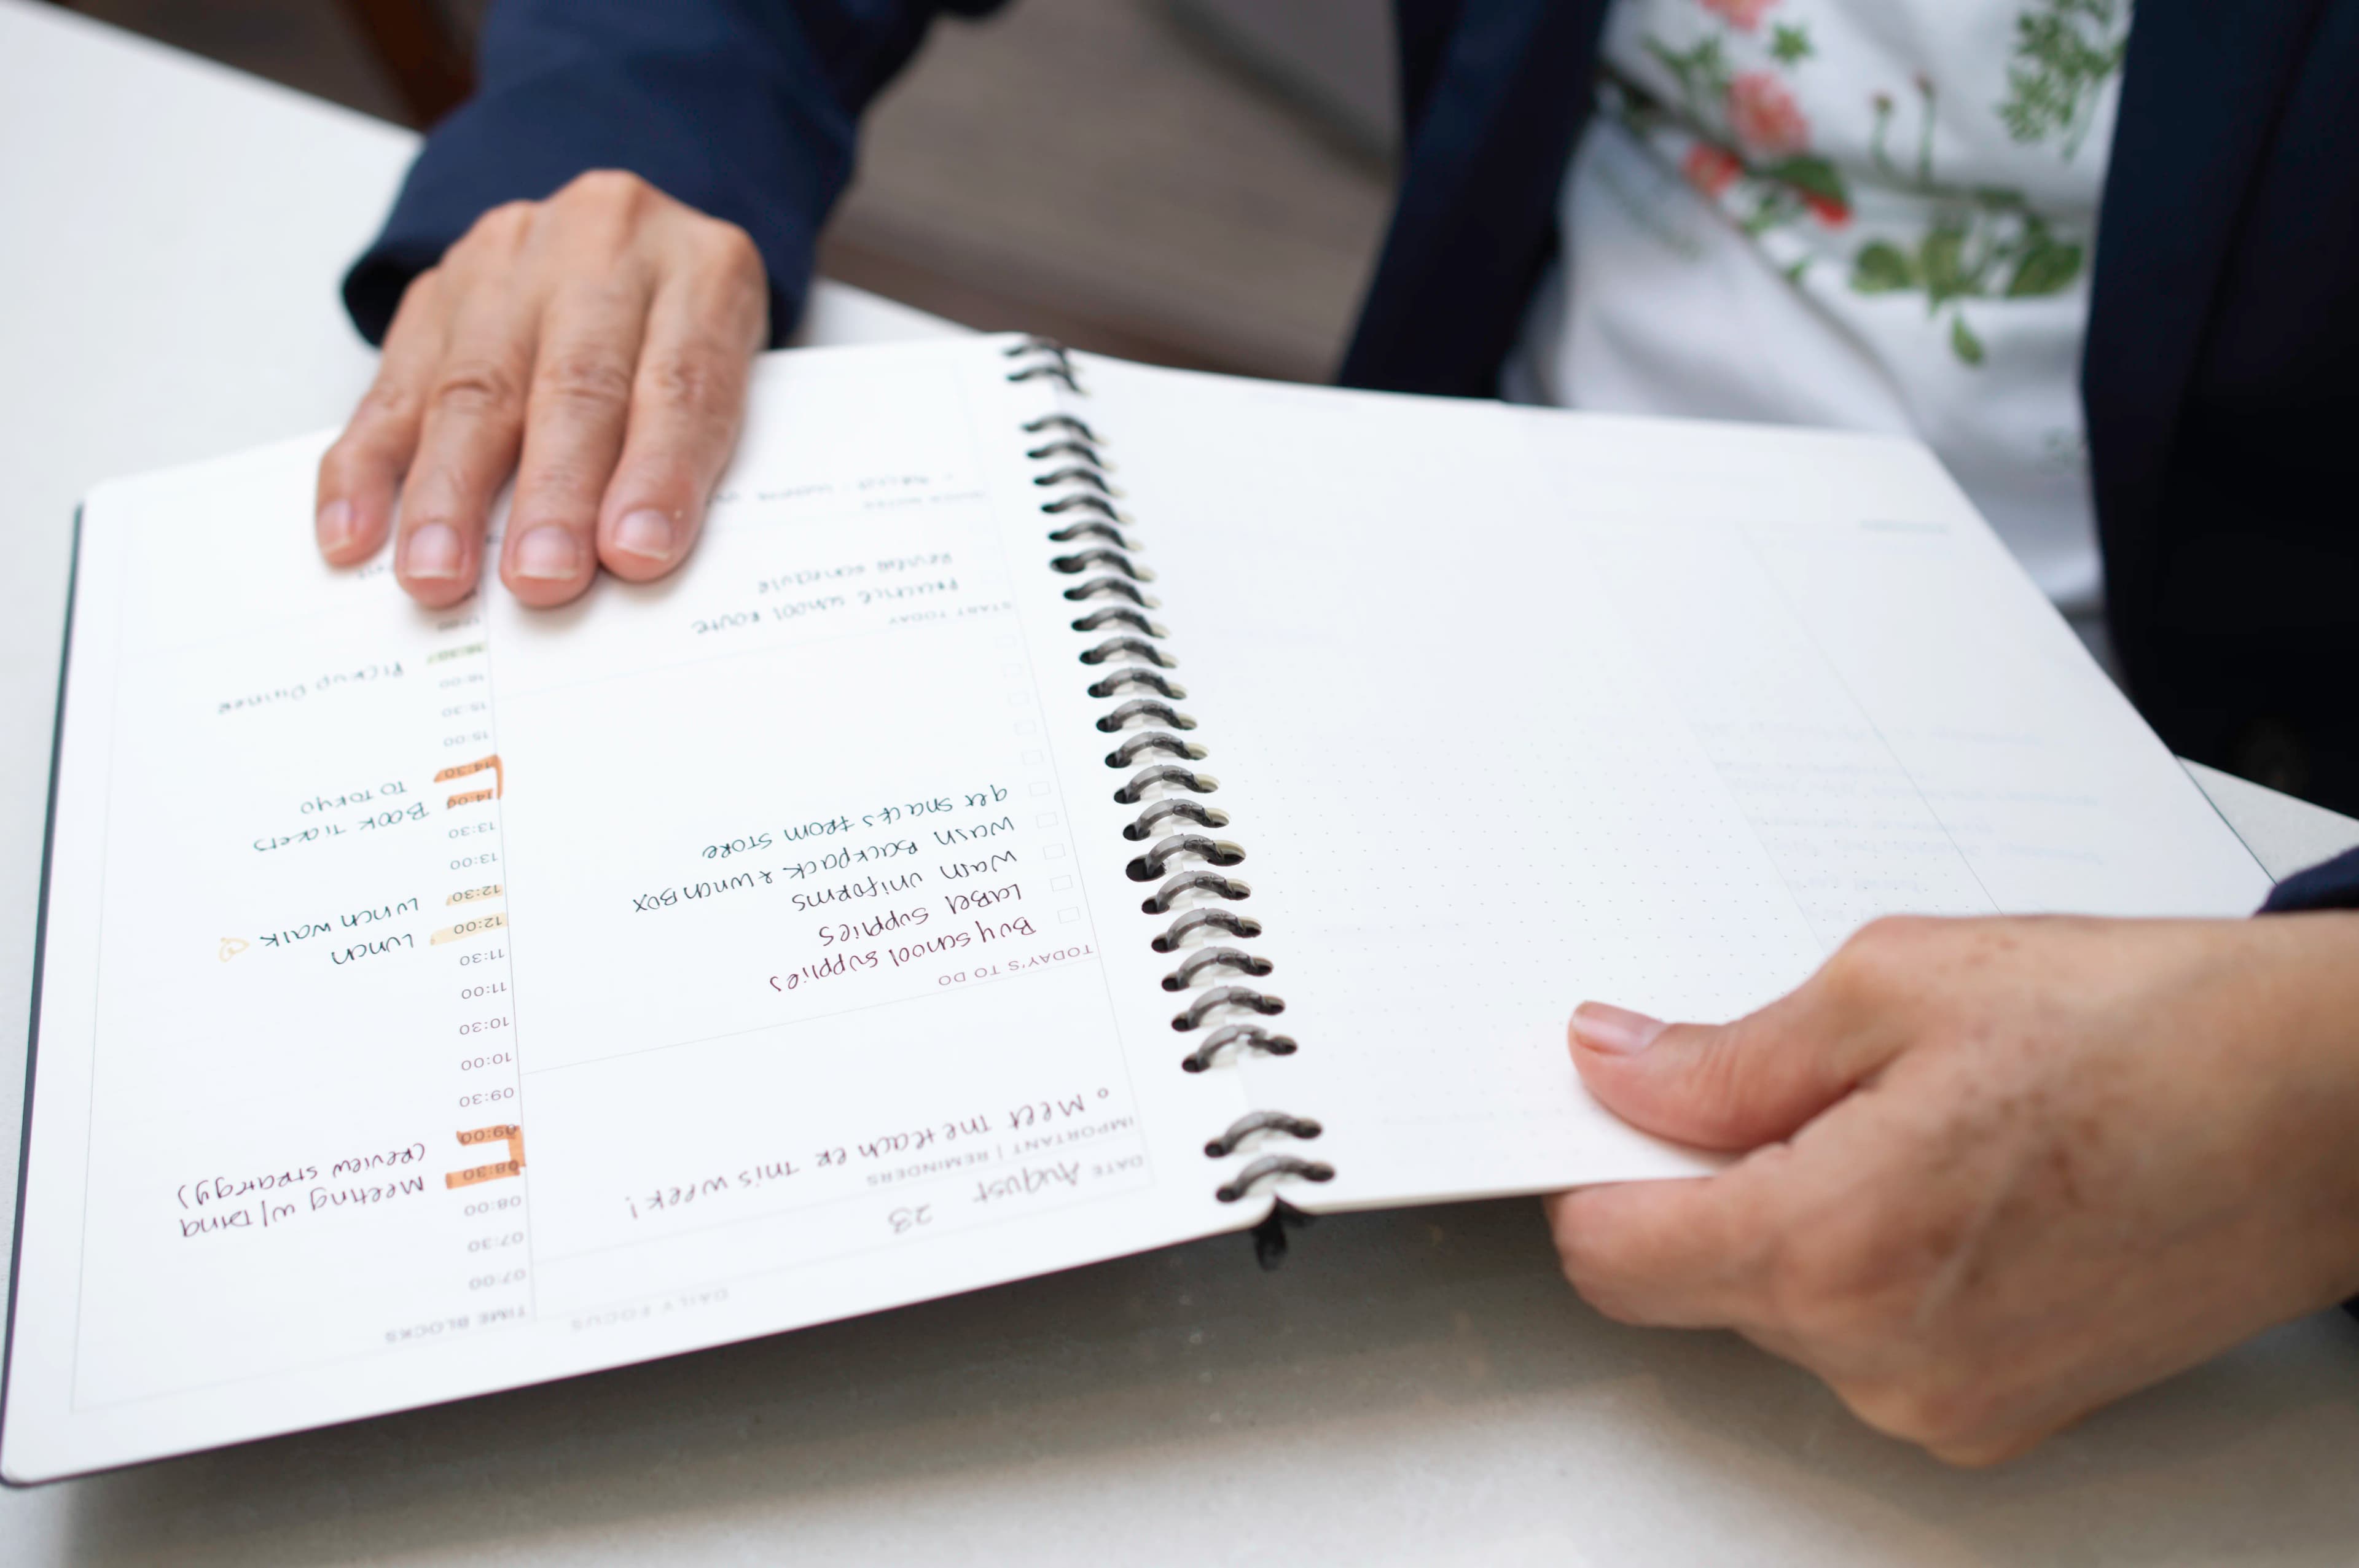 DAILY FOCUS
DATE August 23
IMPORTANT | REMINDERS
o Meet the teacher this week!
TODAY'S TO DO
Buy school supplies
Label supplies
wash uniforms
wash Backpack & Lunch Box
get snacks from store
START TODAY
Practice school route
Review schedule
TIME BLOCKS
07:00
07:30
08:00
08:30 Meeting w/ Dina
09:00 (review strategy)
09:30
10:00
10:30
11:00
11:30
12:00 Lunch
12:30 Lunch walk
13:00
13:30
14:00 Book Tickets
14:30 To Tokyo
15:00
15:30
16:00
16:30 Pick up Dinner
17:00